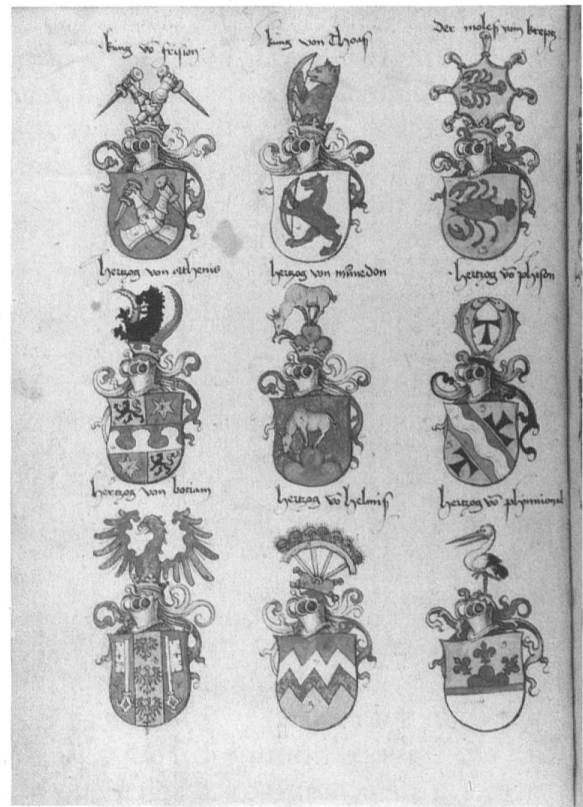 kung vō frision
kung von Thoas
der moles vom krepz
hertzog von athenis
hertzog von mimedon
hertzog vō phison
hertzog von botiam
hertzog vō helmiß
hertzog vō phinnional